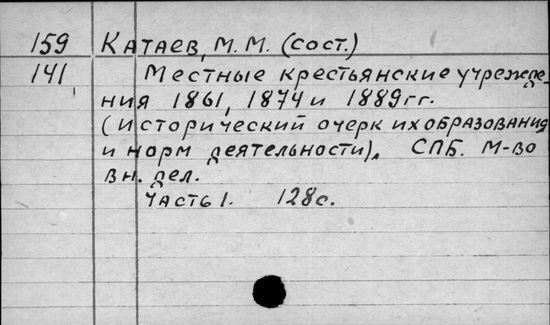 159 Катаев, М. М. (сост.)
141 Местные крестьянские учрежде-
ния 1861, 1874 и 1889 гг.
(исторический очерк их образования
и норм деятельности). СПБ. М-во
вн. дел.
Часть I. 128с.